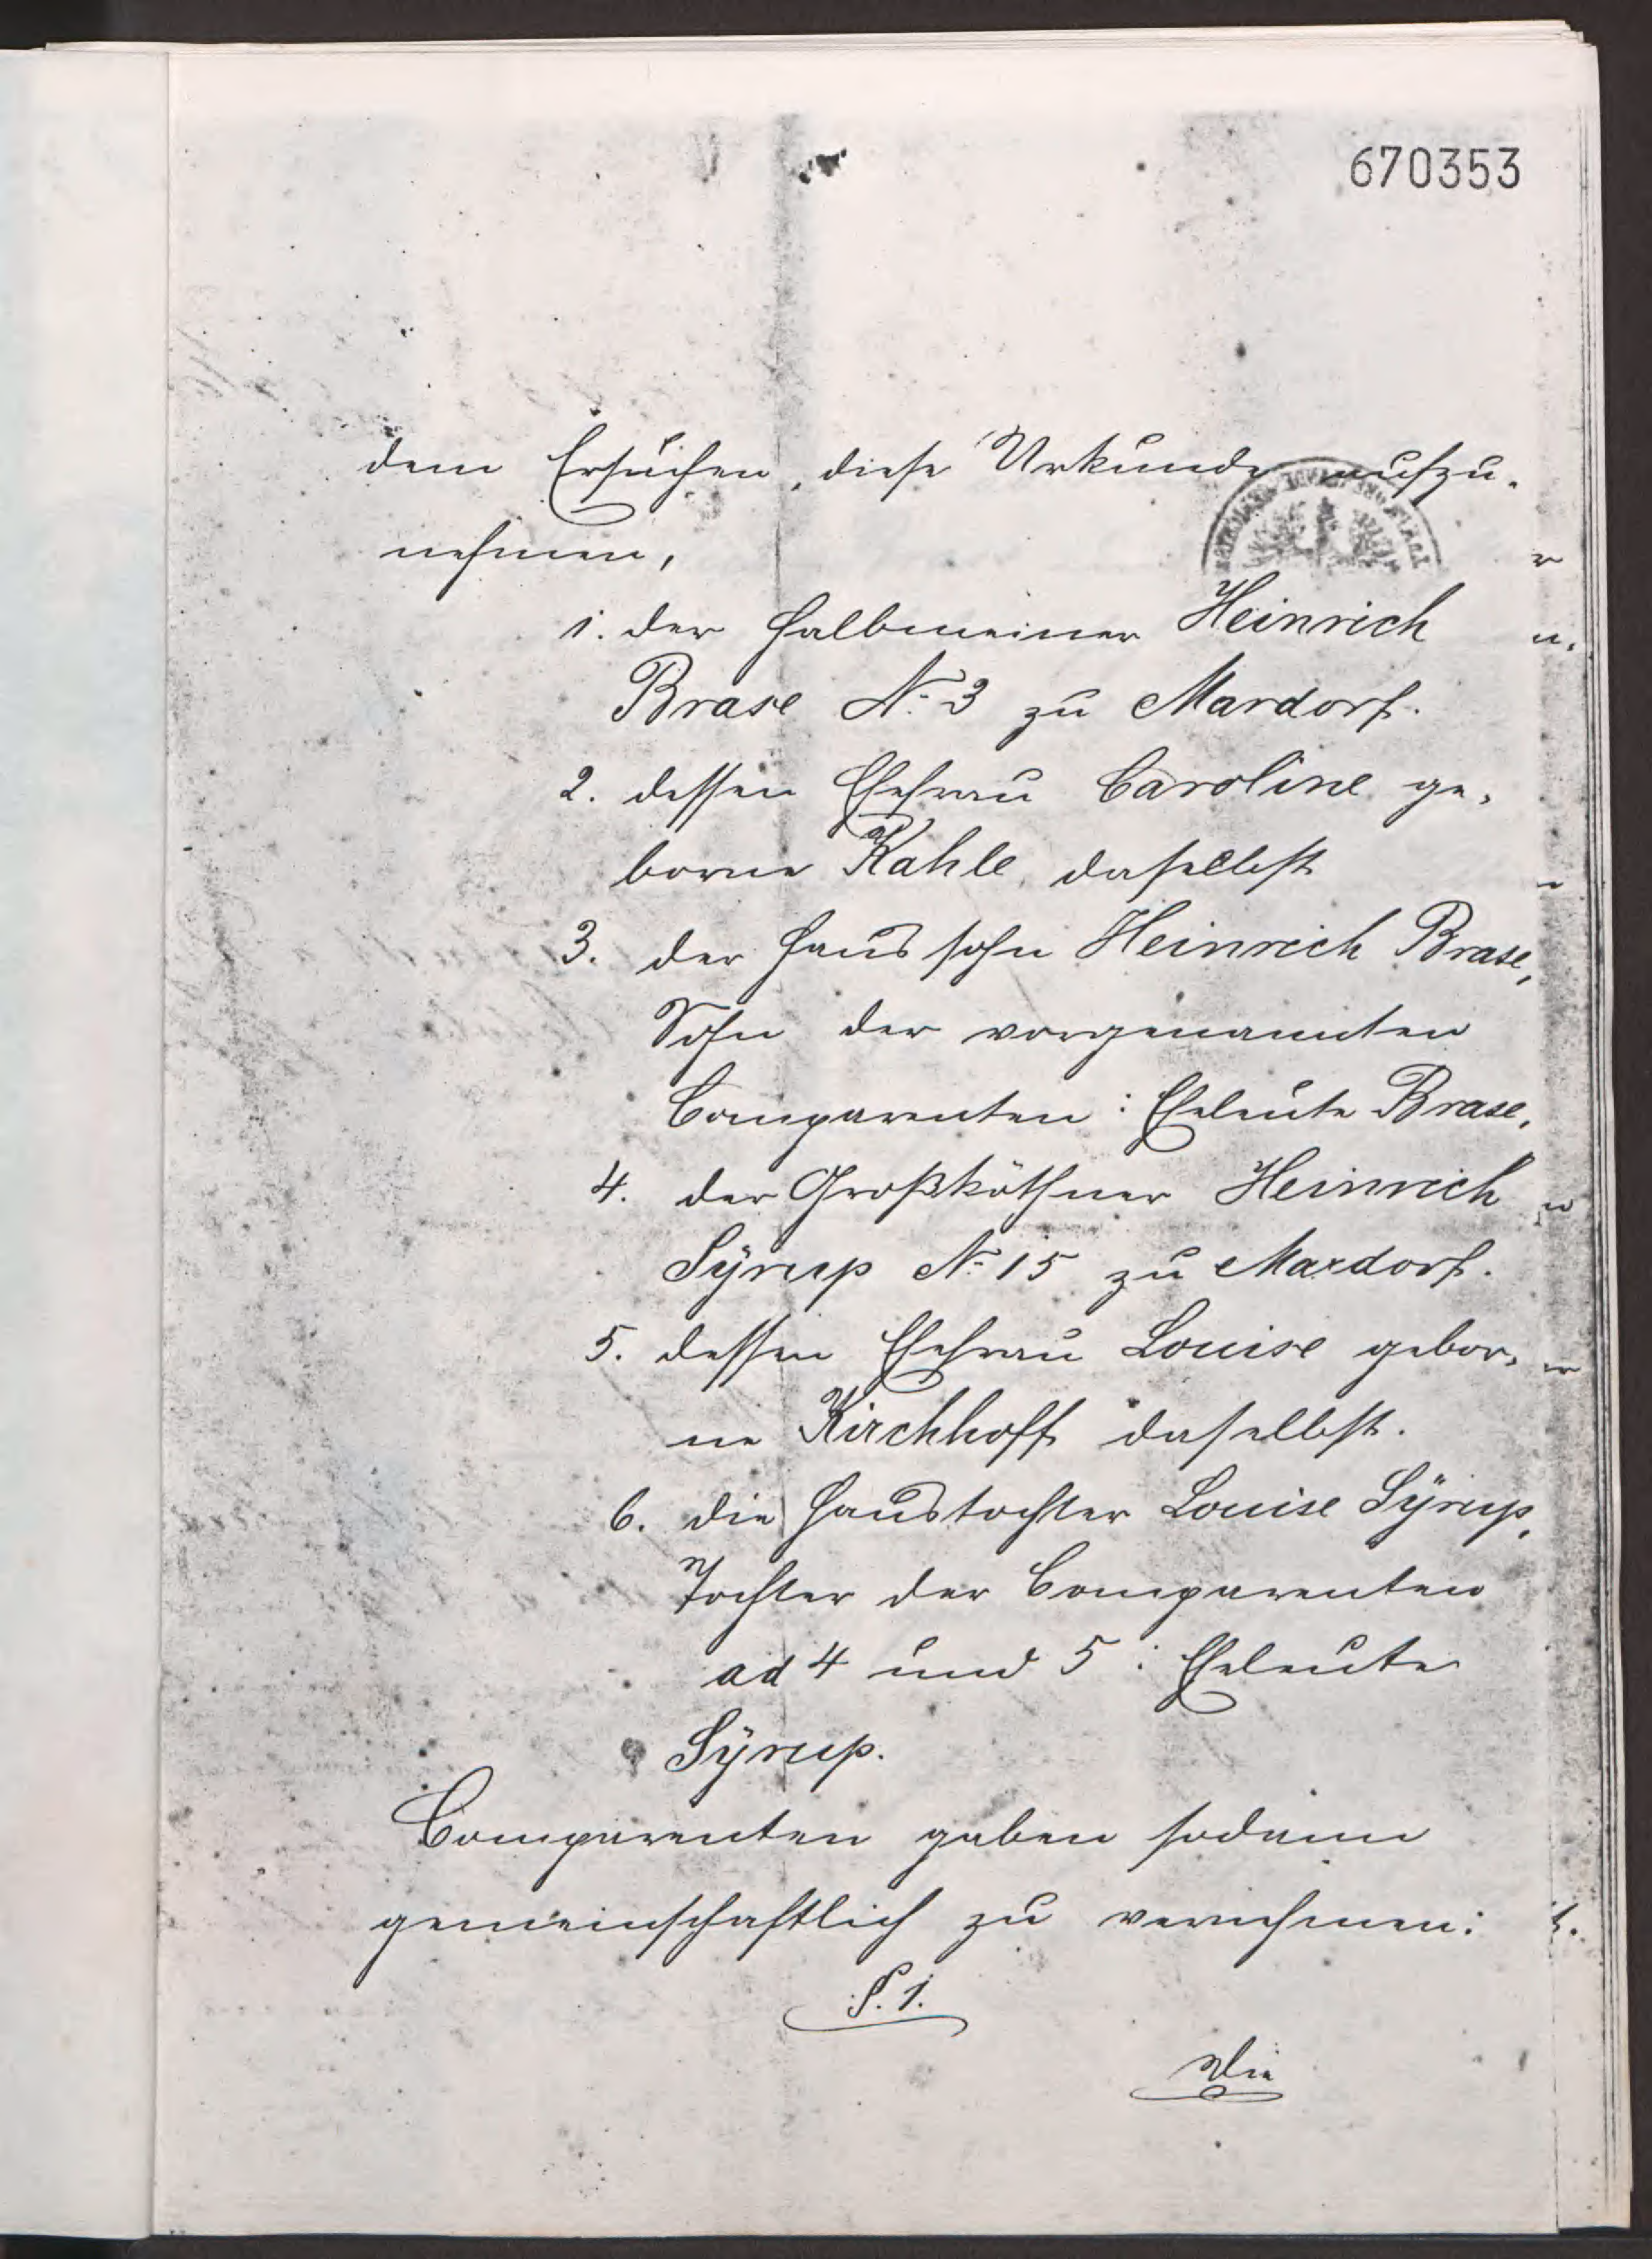 670353
dem Ersuchen, diese Urkunde aufzu-
nehmen,
1. der Halbmeiner Heinrich
Brase N. 3 zu Mardorf.
2. dessen Ehefrau Caroline ge-
borne Kahle daselbst
3. der Haussohn Heinrich Brase,
Sohn der vorgenannten
Comparenten: Eheleute Brase,
4. der Großköthner Heinrich
Syrup N. 15 zu Mardorf.
5. dessen Ehefrau Louise gebor-
ne Kirchhoff daselbst.
6. die Haustochter Louise Syrup,
Tochter der Comparenten
ad 4 und 5: Eheleute
Syrup.
Comparenten gaben sodann
gemeinschaftlich zu vernehmen:
§. 1.
Die